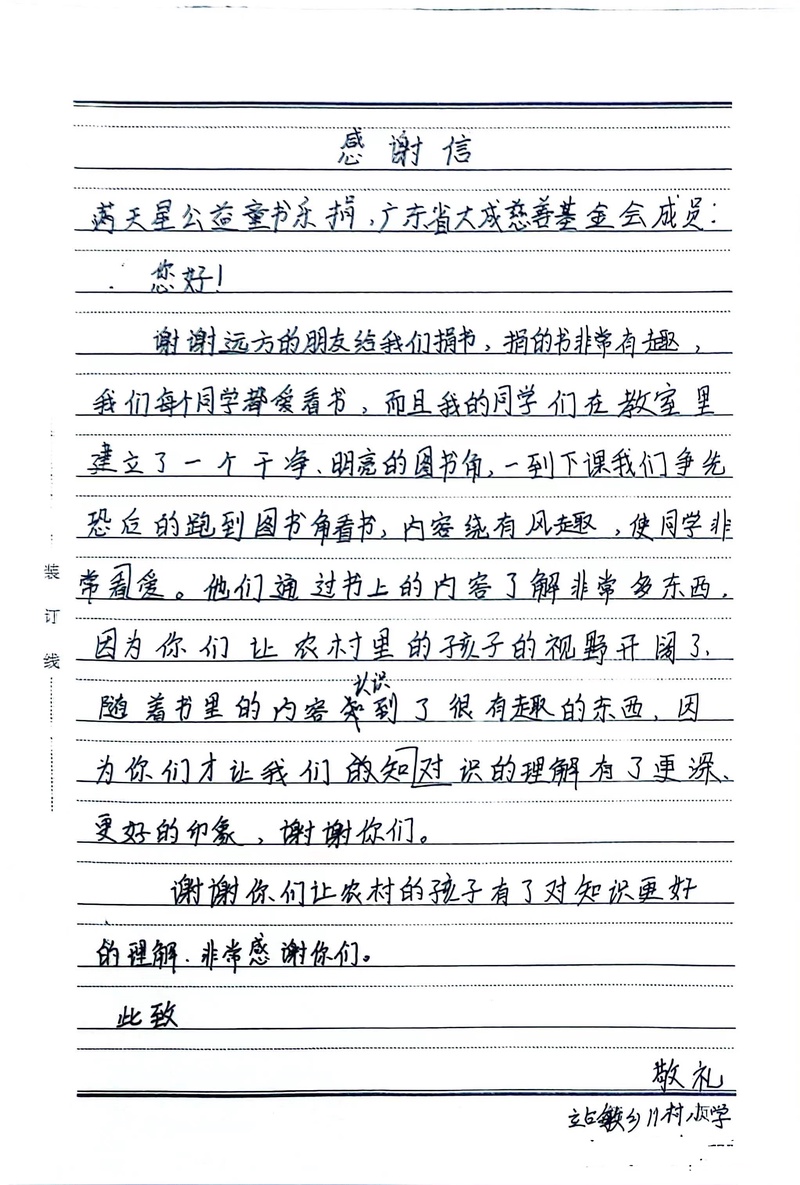 感谢信
满天星公益童书乐捐,广东省大成慈善基金会成员:
您好!
谢谢远方的朋友给我们捐书,捐的书非常有趣,
我们每个同学都爱看书,而且我的同学们在教室里
建立了一个干净、明亮的图书角,一到下课我们争先
恐后的跑到图书角看书,内容绕有风趣,使同学非
常看爱。他们通过书上的内容了解非常多东西.
因为你们让农村里的孩子的视野开阔了.
认识
随着书里的内容知到了很有趣的东西.因
为你们才让我们的知对识的理解有了更深、
更好的印象,谢谢你们。
谢谢你们让农村的孩子有了对知识更好
的理解.非常感谢你们。
此致
敬礼
乡 村 学
装订线